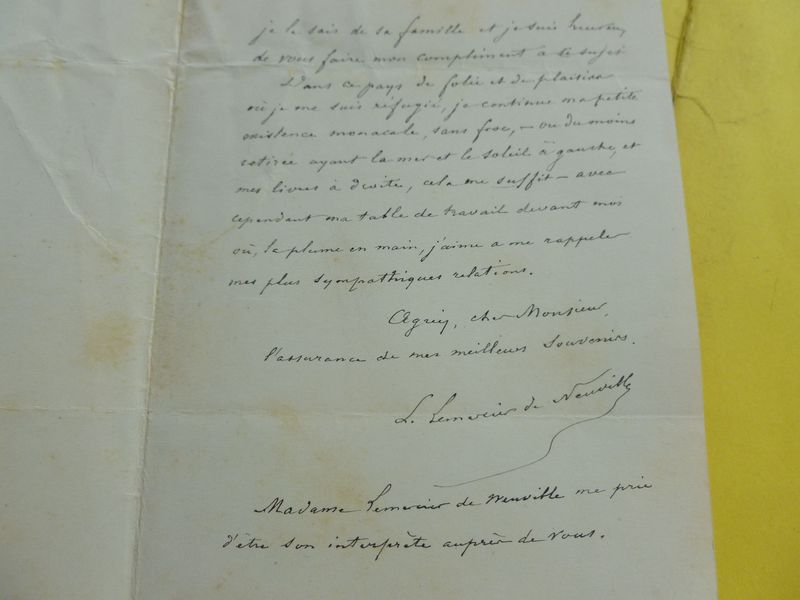 je le sais de sa famille et je suis heureux,
de vous faire mon compliment à ce sujet
Dans ce pays de folie et de plaisirs
où je me suis réfugié, je continue ma petite
existence monacale, sans froc, – ou du moins
retirée ayant la mer et le soleil à gauche, et
mes livres à droite, cela me suffit – avec
cependant ma table de travail devant moi
où, la plume en main, j'aime a me rappeler
mes plus sympathiques relations.
Agréez, cher Monsieur,
l'assurance de mes meilleurs souvenirs.
L. Lemercier de Neuville
Madame Lemercier de Neuville me prie
d'être son interprète auprès de vous.